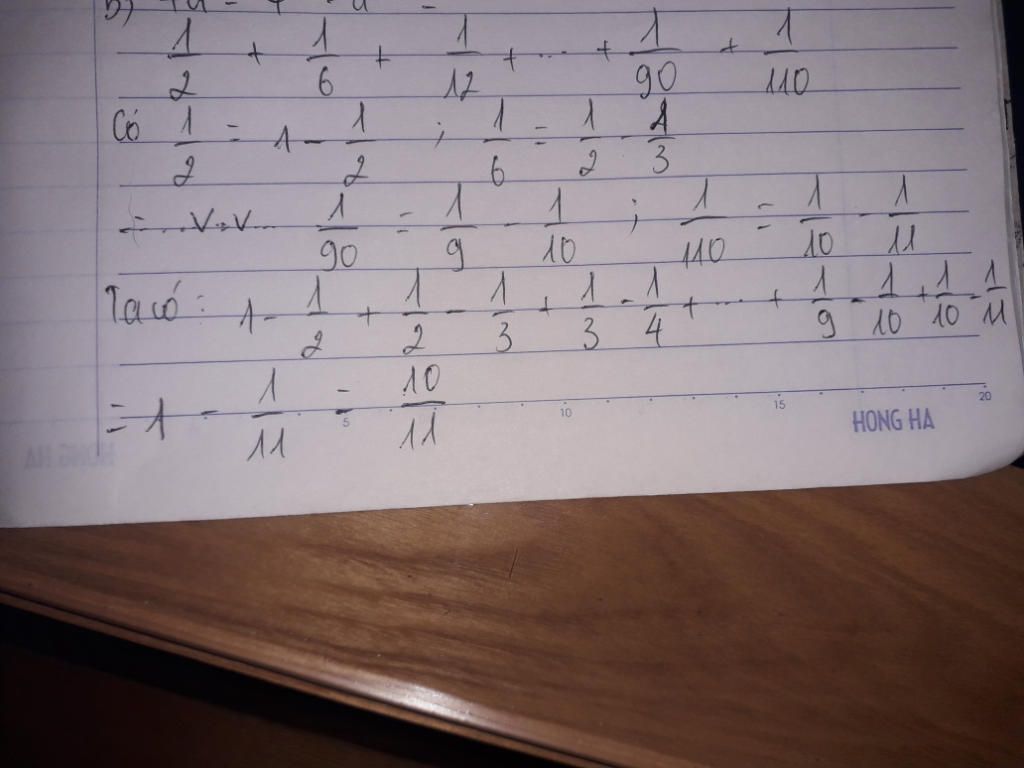 1/2 + 1/6 + 1/12 + ... + 1/90 + 1/110
Có 1/2 = 1 - 1/2 ; 1/6 = 1/2 - 1/3
= ...v.v... 1/90 = 1/9 - 1/10 ; 1/110 = 1/10 - 1/11
Ta có : 1 - 1/2 + 1/2 - 1/3 + 1/3 - 1/4 + ... + 1/9 - 1/10 + 1/10 - 1/11
= 1 - 1/11 = 10/11
5 10 15 20
HONG HA